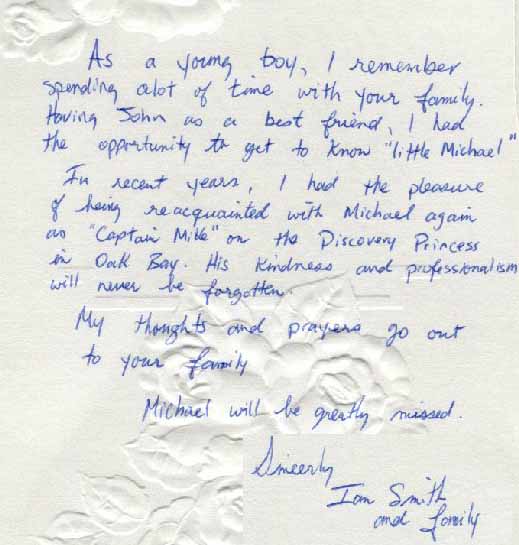 As a young boy, I remember
spending alot of time with your family.
Having John as a best friend, I had
the opportunity to get to know "little Michael"
In recent years, I had the pleasure
of being reacquainted with Michael again
as "Captain Mike" on the Discovery Princess
in Oak Bay. His kindness and professionalism
will never be forgotten.
My thoughts and prayers go out
to your family
Michael will be greatly missed.
Sincerly
Ian Smith
and family